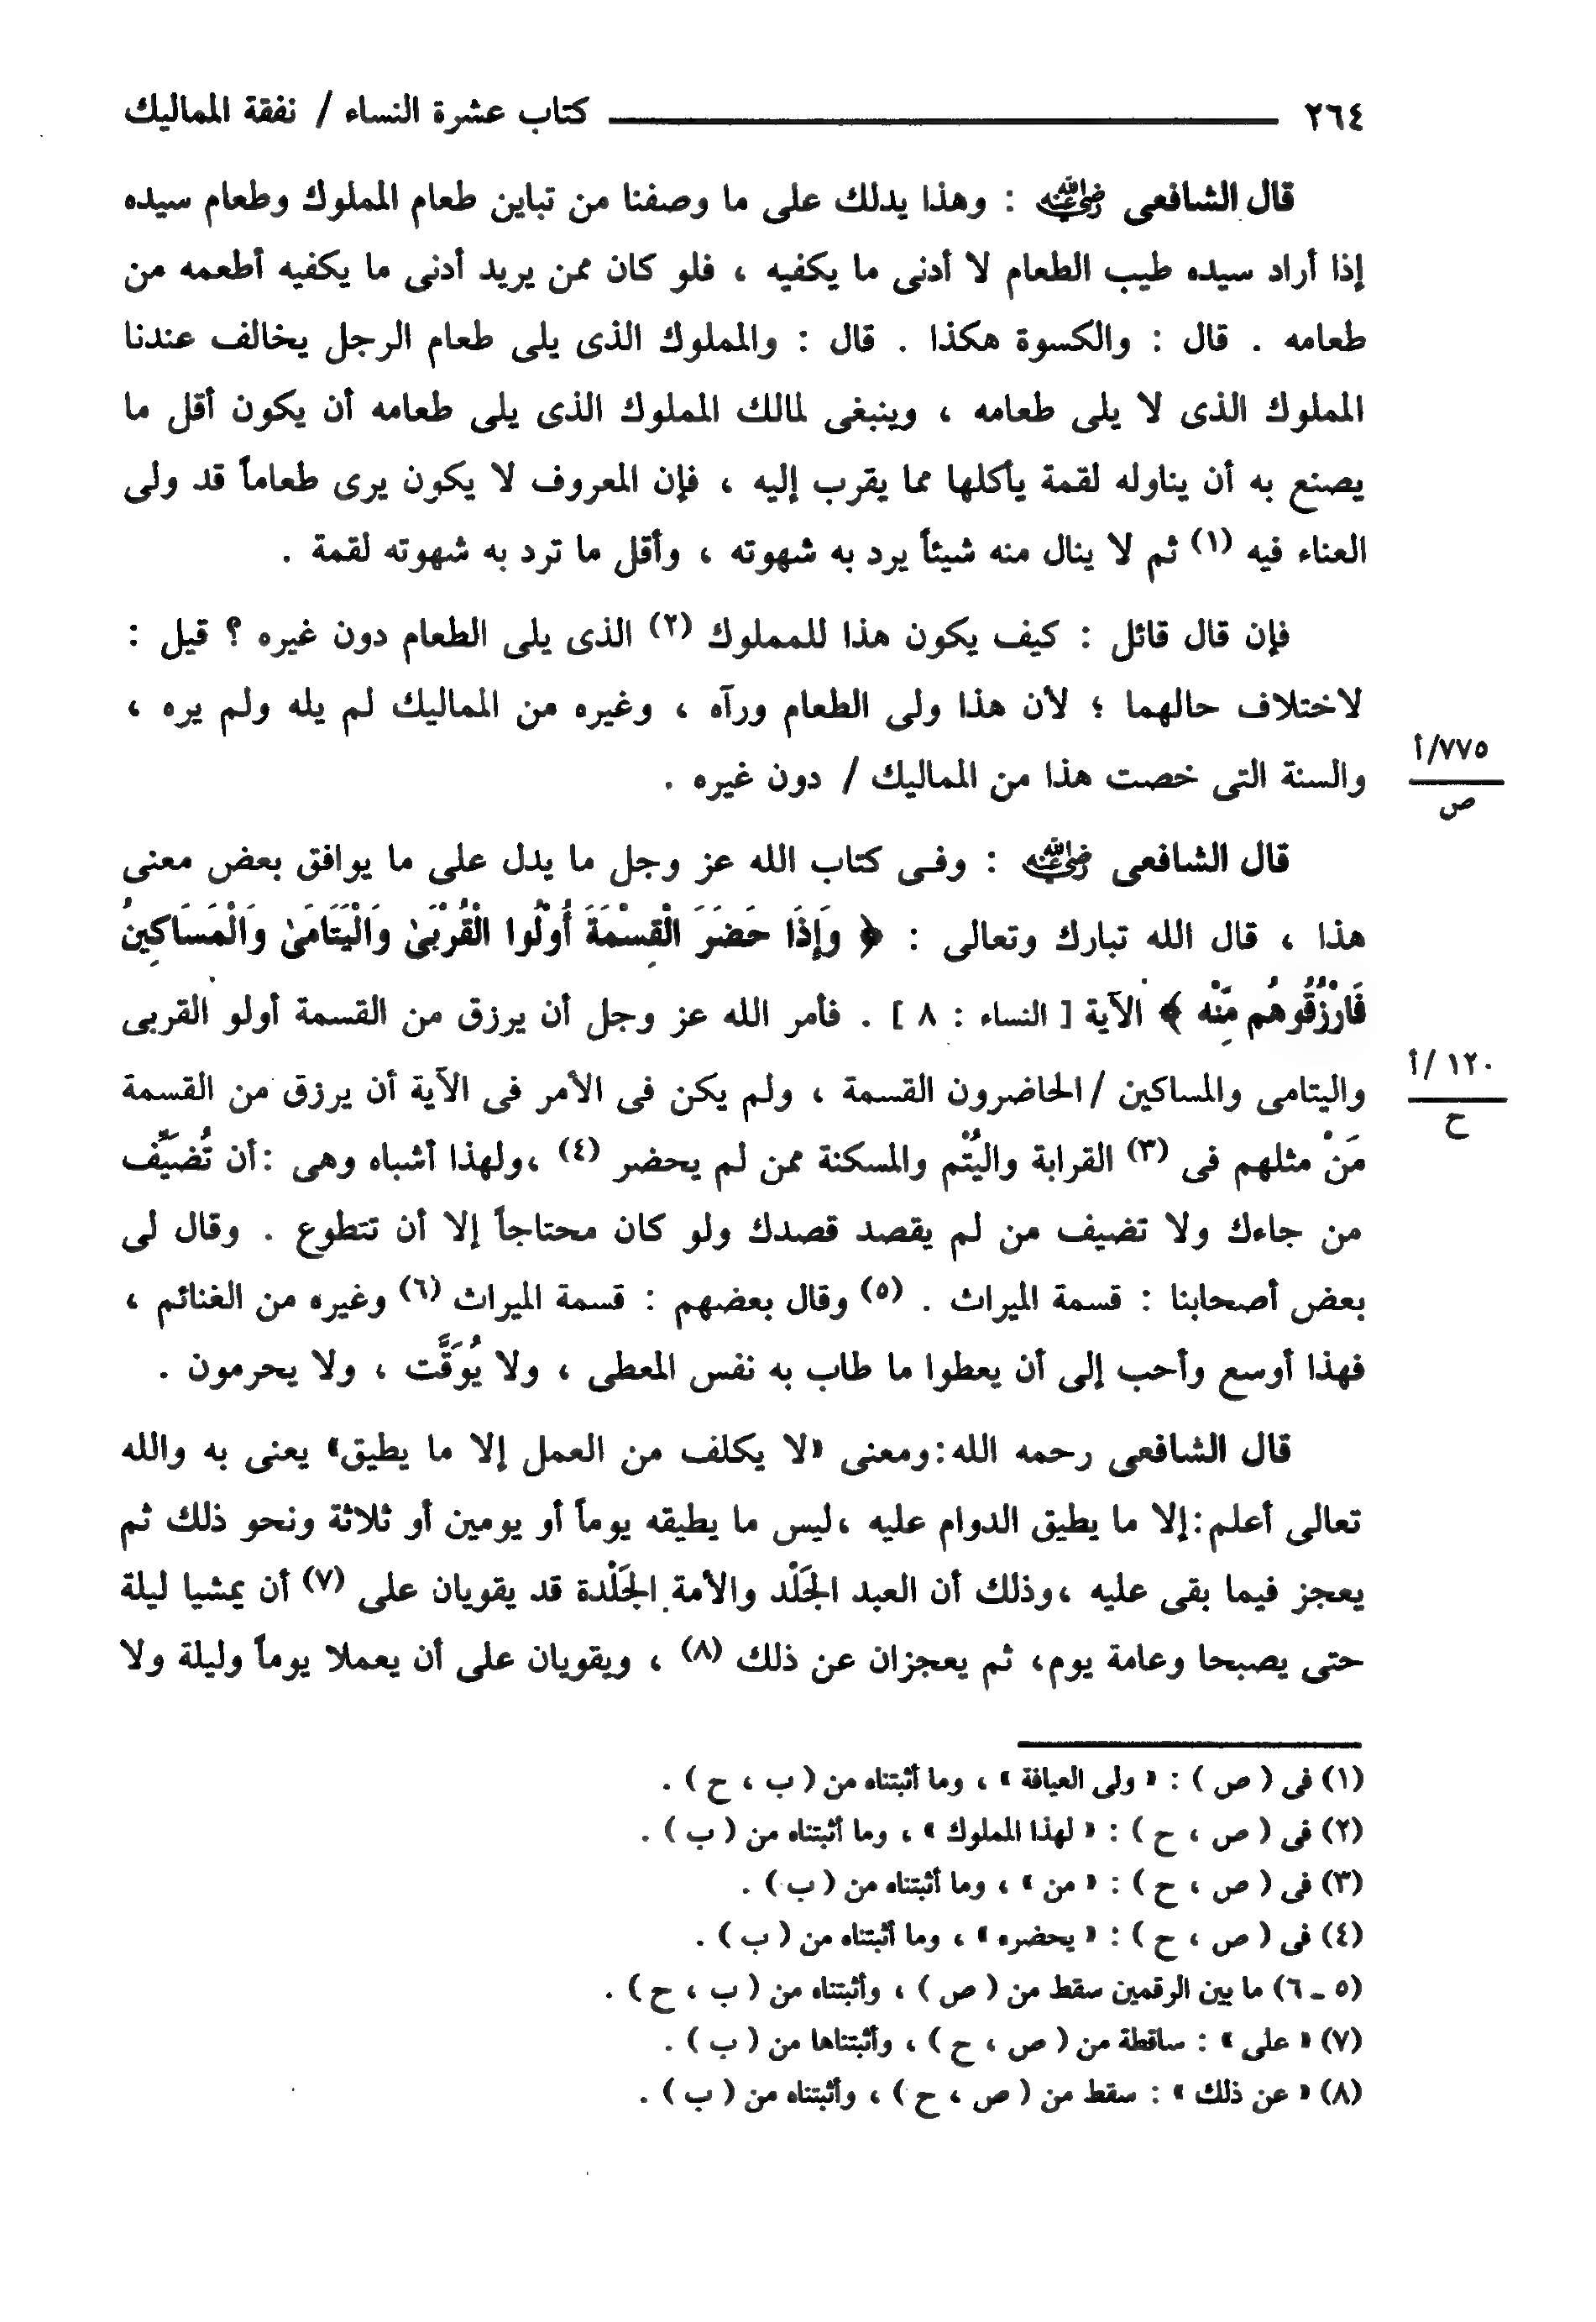 ٢٦٤ كتاب عشرة النساء / نفقة المماليك
قال الشافعى رضي الله عنه : وهذا يدلك على ما وصفنا من تباين طعام المملوك وطعام سيده
إذا أراد سيده طيب الطعام لا أدنى ما يكفيه ، فلو كان ممن يريد أدنى ما يكفيه أطعمه من
طعامه . قال : والكسوة هكذا . قال : والمملوك الذى يلى طعام الرجل يخالف عندنا
المملوك الذى لا يلى طعامه ، وينبغى لمالك المملوك الذى يلى طعامه أن يكون أقل ما
يصنع به أن يناوله لقمة يأكلها مما يقرب إليه ، فإن المعروف لا يكون يرى طعاماً قد ولى
العناء فيه (١) ثم لا ينال منه شيئاً يرد به شهوته ، وأقل ما ترد به شهوته لقمة .
فإن قال قائل : كيف يكون هذا للمملوك (٢) الذى يلى الطعام دون غيره ؟ قيل :
لاختلاف حالهما ؛ لأن هذا ولى الطعام ورآه ، وغيره من المماليك لم يله ولم يره ،
والسنة التى خصت هذا من المماليك / دون غيره .
٧٧٥/أ
ص
قال الشافعى رضي الله عنه : وفى كتاب الله عز وجل ما يدل على ما يوافق بعض معنى
هذا ، قال الله تبارك وتعالى : ﴿ وَإِذَا حَضَرَ الْقِسْمَةَ أُوْلُوا الْقُرْبَىٰ وَالْيَتَامَىٰ وَالْمَسَاكِينُ
فَارْزُقُوهُم مِّنْه ﴾ الآية [ النساء : ٨ ] . فأمر الله عز وجل أن يرزق من القسمة أولو القربى
واليتامى والمساكين /الحاضرون القسمة ، ولم يكن فى الأمر فى الآية أن يرزق من القسمة
١٢٠/أ
ح
مَنْ مثلهم فى (٣) القرابة واليُتْم والمسكنة ممن لم يحضر (٤) ،ولهذا أشباه وهى :أن تُضَيِّف
من جاءك ولا تضيف من لم يقصد قصدك ولو كان محتاجاً إلا أن تتطوع . وقال لى
بعض أصحابنا : قسمة الميراث . (٥) وقال بعضهم : قسمة الميراث (٦) وغيره من الغنائم ،
فهذا أوسع وأحب إلى أن يعطوا ما طاب به نفس المعطى ، ولا يُوَقَّت ، ولا يحرمون .
قال الشافعى رحمه الله:ومعنى «لا يكلف من العمل إلا ما يطيق» يعنى به والله
تعالى أعلم:إلا ما يطيق الدوام عليه ،ليس ما يطيقه يوماً أو يومين أو ثلاثة ونحو ذلك ثم
يعجز فيما بقى عليه ،وذلك أن العبد الجَلْد والأمة الجَلْدة قد يقويان على (٧) أن يمشيا ليلة
حتى يصبحا وعامة يوم، ثم يعجزان عن ذلك (٨) ، ويقويان على أن يعملا يوماً وليلة ولا
(١) فى ( ص ) : « ولى العيافة » ، وما أثبتناه من ( ب ، ح ) .
(٢) فى ( ص ، ح ) : « لهذا المملوك » ، وما أثبتناه من ( ب ) .
(٣) فى ( ص ، ح ) : « من » ، وما أثبتناه من ( ب ) .
(٤) فى ( ص ، ح ) : « يحضره » ، وما أثبتناه من ( ب ) .
(٥ ـ ٦) ما بين الرقمين سقط من ( ص ) ، وأثبتناه من ( ب ، ح ) .
(٧) « على » : ساقطة من ( ص ، ح ) ، وأثبتناها من ( ب ) .
(٨) « عن ذلك » : سقط من ( ص ، ح ) ، وأثبتناه من ( ب ) .